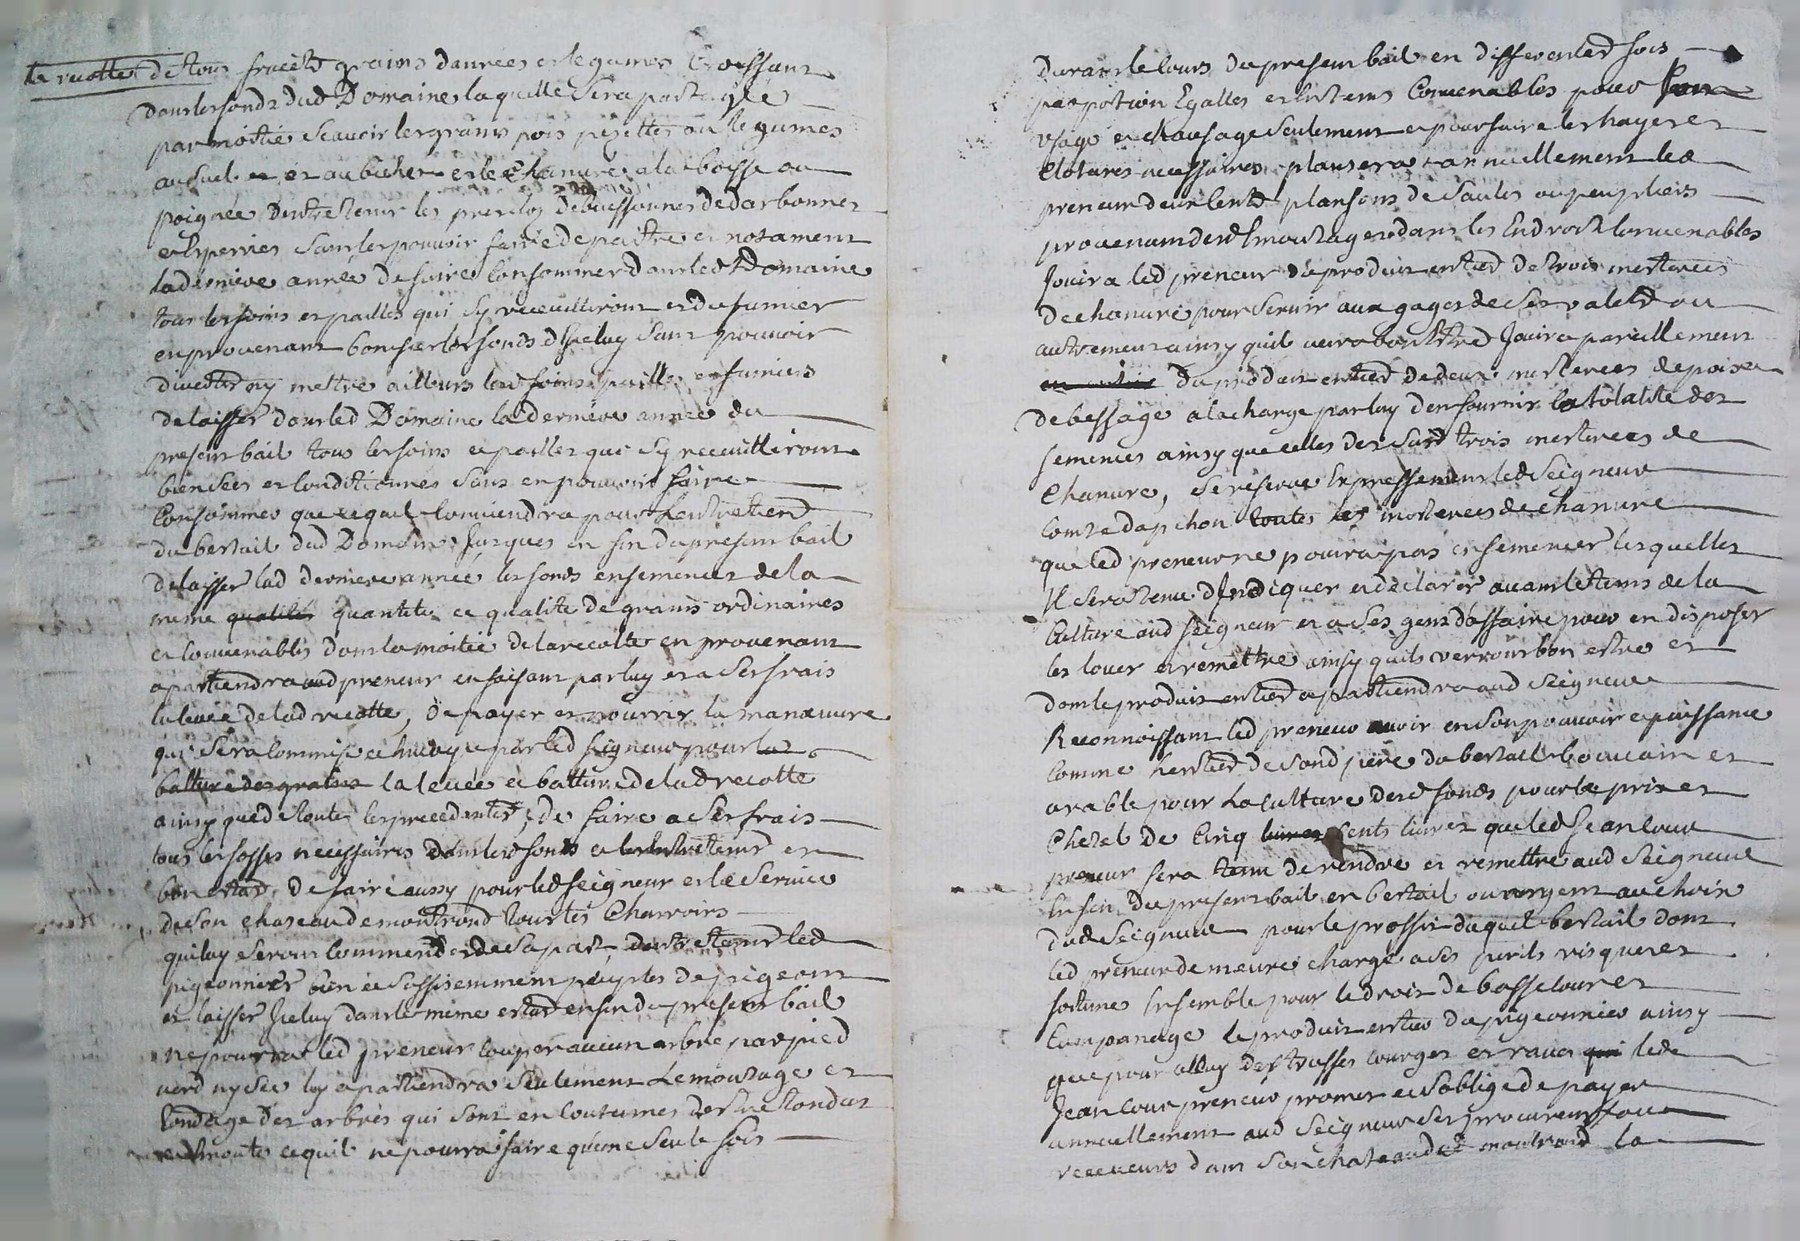 la recolte de tous fruicts grains danrees et legumes Croissant
dans les fonds dud Domaine laquelle sera partagée
par moitié scauoir les grains pois pezettes ou legumes
au suel et au bicher et le Chanure a la boisse ou
poignée Dentretenir les pres clos de buissonnes de darbonnes
et sans les pouuoir faire depaitre et notament
la derniere année de faire Consommer dans led Domaine
tous les foins et pailles qui sy receuilliront et du fumier
en provenant bonifier les fonds d'Iceluy sans pouuoir
diuertir ny mettre ailleurs lesd foins pailles et fumiers
de laisser dans led Domaine la derniere année du
present bail tous les foins et pailles qui sy receuilliront
bien secs et Conditionnes sans en pouuoir faire
Consommer que ce quil Conuiendra pour Lentretient
du bestail dud Domaine Jusques en fin du present bail
de laisser lad derniere année les fonds ensemences de la
meme qualité quantite et qualite de grains ordinaires
et Conuenables dont la moitie de la recolte en prouenant
apartiendra aud preneur en faisant par luy et a ses frais
la leuée de lad recolte, De payer et nourrir la manœuure
qui sera Commise et par led seigneur pour la
batture des grains la leuée et batture de lad recolte
ainsy que de toutes les precedentes, De faire a ses frais
tous les fosses necessaires dans lesd fonds et les entretenir en
bon estat, de faire aussy pour led seigneur et le seruice
de son chateau de montrond tous les Charrois
qui luy seront Commendes de sa part, dentretenir led
pigeonnier bien et suffisemment peuples de pigeons
et laisser Iceluy dans le meme estat en fin du present bail
ne pourrat led preneur couper aucun arbre par pied
uerd ny sec luy apartiendra seulement Lemoutage et
tondage des arbres qui sont en Coutumes destre tondus
et Emoutes ce quil ne pourra faire qu'une seule fois
durant le Cours du present bail en differentes fois
par portion Egalles et En tems Conuenables pour son
usage et chaufage seulement et pour faire les hayes et
Clotures necessaires plantera annuellement led
preneur plansons de saules ou peupliers
prouenant desd Emoutages dans les Endroits Conuenables
Jouira led preneur du produit entier de trois mesterees
de chanure pour seruir aux gages de ses valets ou
autrement ainsy quil uerra bon Estre Jouira pareillement
du produit entier de deux mesterees de poisse
de bessage a la charge par luy den fournir la totalite des
semences ainsy que celles des susd trois mesterees de
Chanure, se reserue Expressement led Seigneur
Comte dapchon toutes les mesterees de chanure
que led preneur ne pourra pas ensemencer lesquelles
Il sera tenu d'Indiquer et declarer auant le tems de la
Culture aud seigneur et a ses gens d'affaire pour en disposer
les louer et remettre ainsy quils verront bon estre et
dont le produit entier apartiendra aud Seigneur
Reconnoissant led preneur auoir en son pouuoir et puissance
comme heritier de sond pere du bestail et
arable pour La culture desd fonds pour le prix et
Chetel de Cinq liures Cents liures que led Jean Cour
preneur sera tenu de rendre et remettre aud Seigneur
En fin du present bail en bestail ou argent au choix
dud Seigneur pour le proffit duquel bestail dont
led preneur demeure chargé a ses perils risques et
fortune Ensemble pour le droit de basse Cour et
Companage le produit entier du pigeonnier ainsy
que pour celuy des trusses Courges et raues qui led
Jean Cour preneur promet et soblige de payer
annuellement aud Seigneur ses procureurs ou
receueurs dans son chateau de montrond la